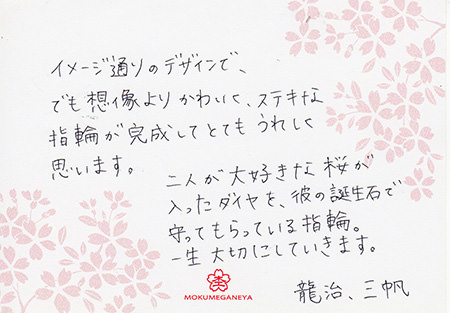 イメージ通りのデザインで、
でも想像よりかわいく、ステキな
指輪が完成してとてもうれしく
思います。
二人が大好きな桜が
入ったダイヤを、彼の誕生石で
守ってもらっている指輪。
一生大切にしていきます。
龍治、三帆
MOKUMEGANEYA